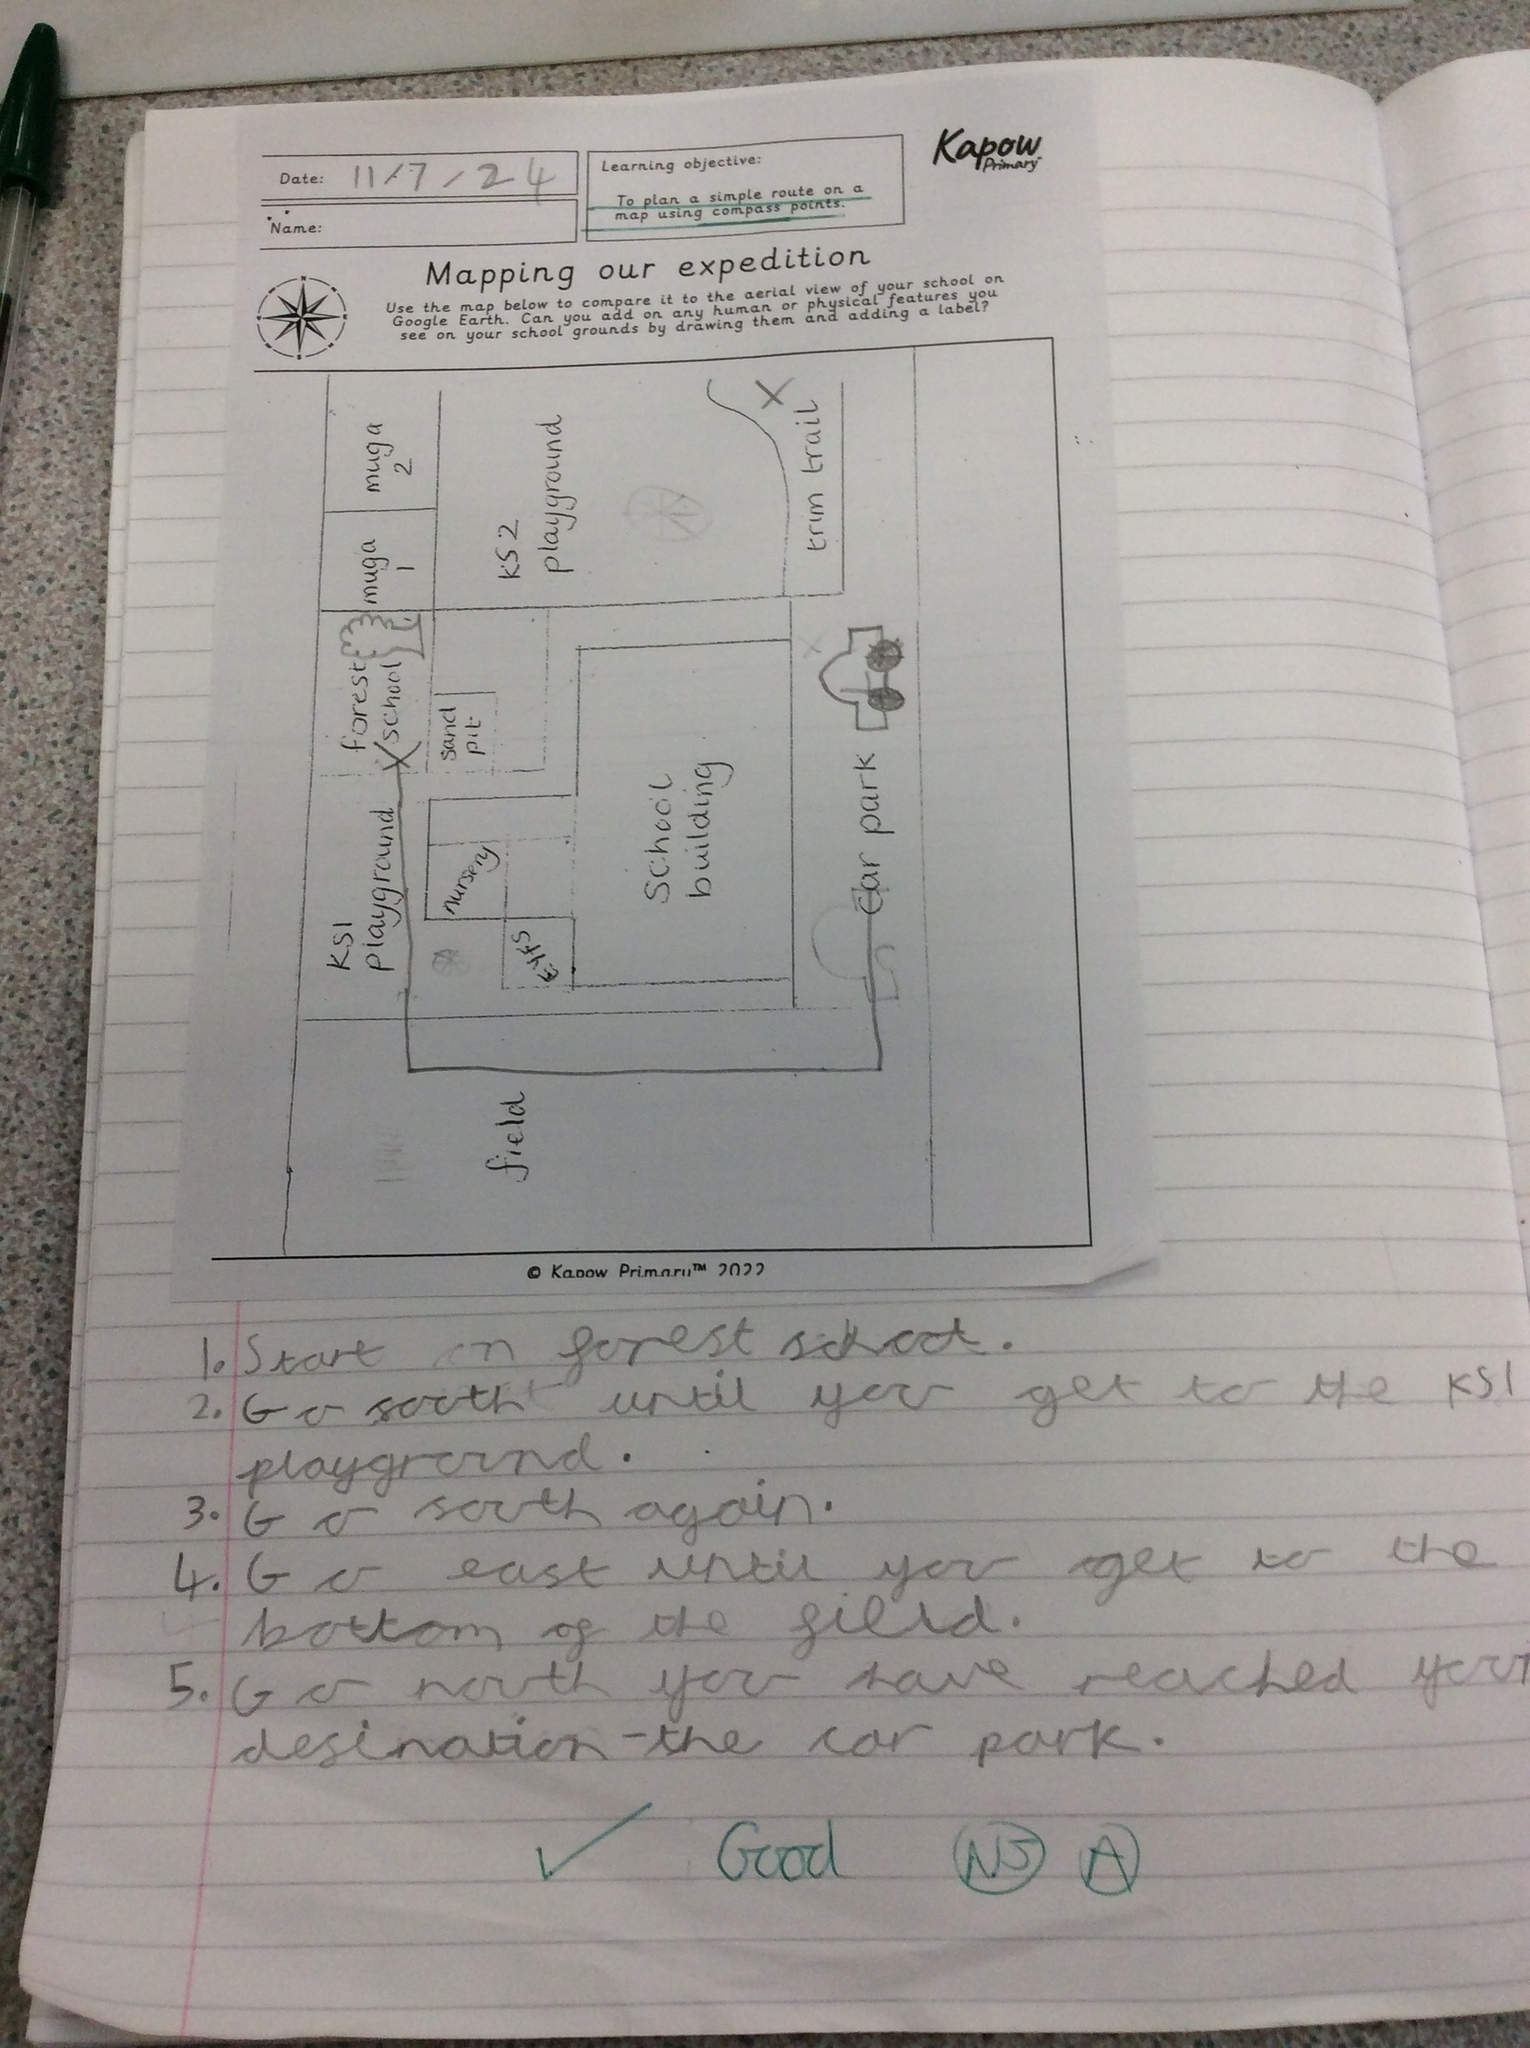 Kapow
Primary
Date: 11/7/24
Learning objective:
To plan a simple route on a
map using compass points.
Name:
Mapping our expedition
Use the map below to compare it to the aerial view of your school on
Google Earth. Can you add on any human or physical features you
see on your school grounds by drawing them and adding a label?
muga
2
muga
1
KS2
playground
trim trail
forest
school
sand
pit
KS1
playground
nursery
EYFS
School
building
car park
field
© Kapow Primary™ 2022
1. Start in forest school.
2. Go south until you get to the KS1
playground.
3. Go south again.
4. Go east until you get to the
bottom of the field.
5. Go north you have reached your
desination - the car park.
✓ Good NS A